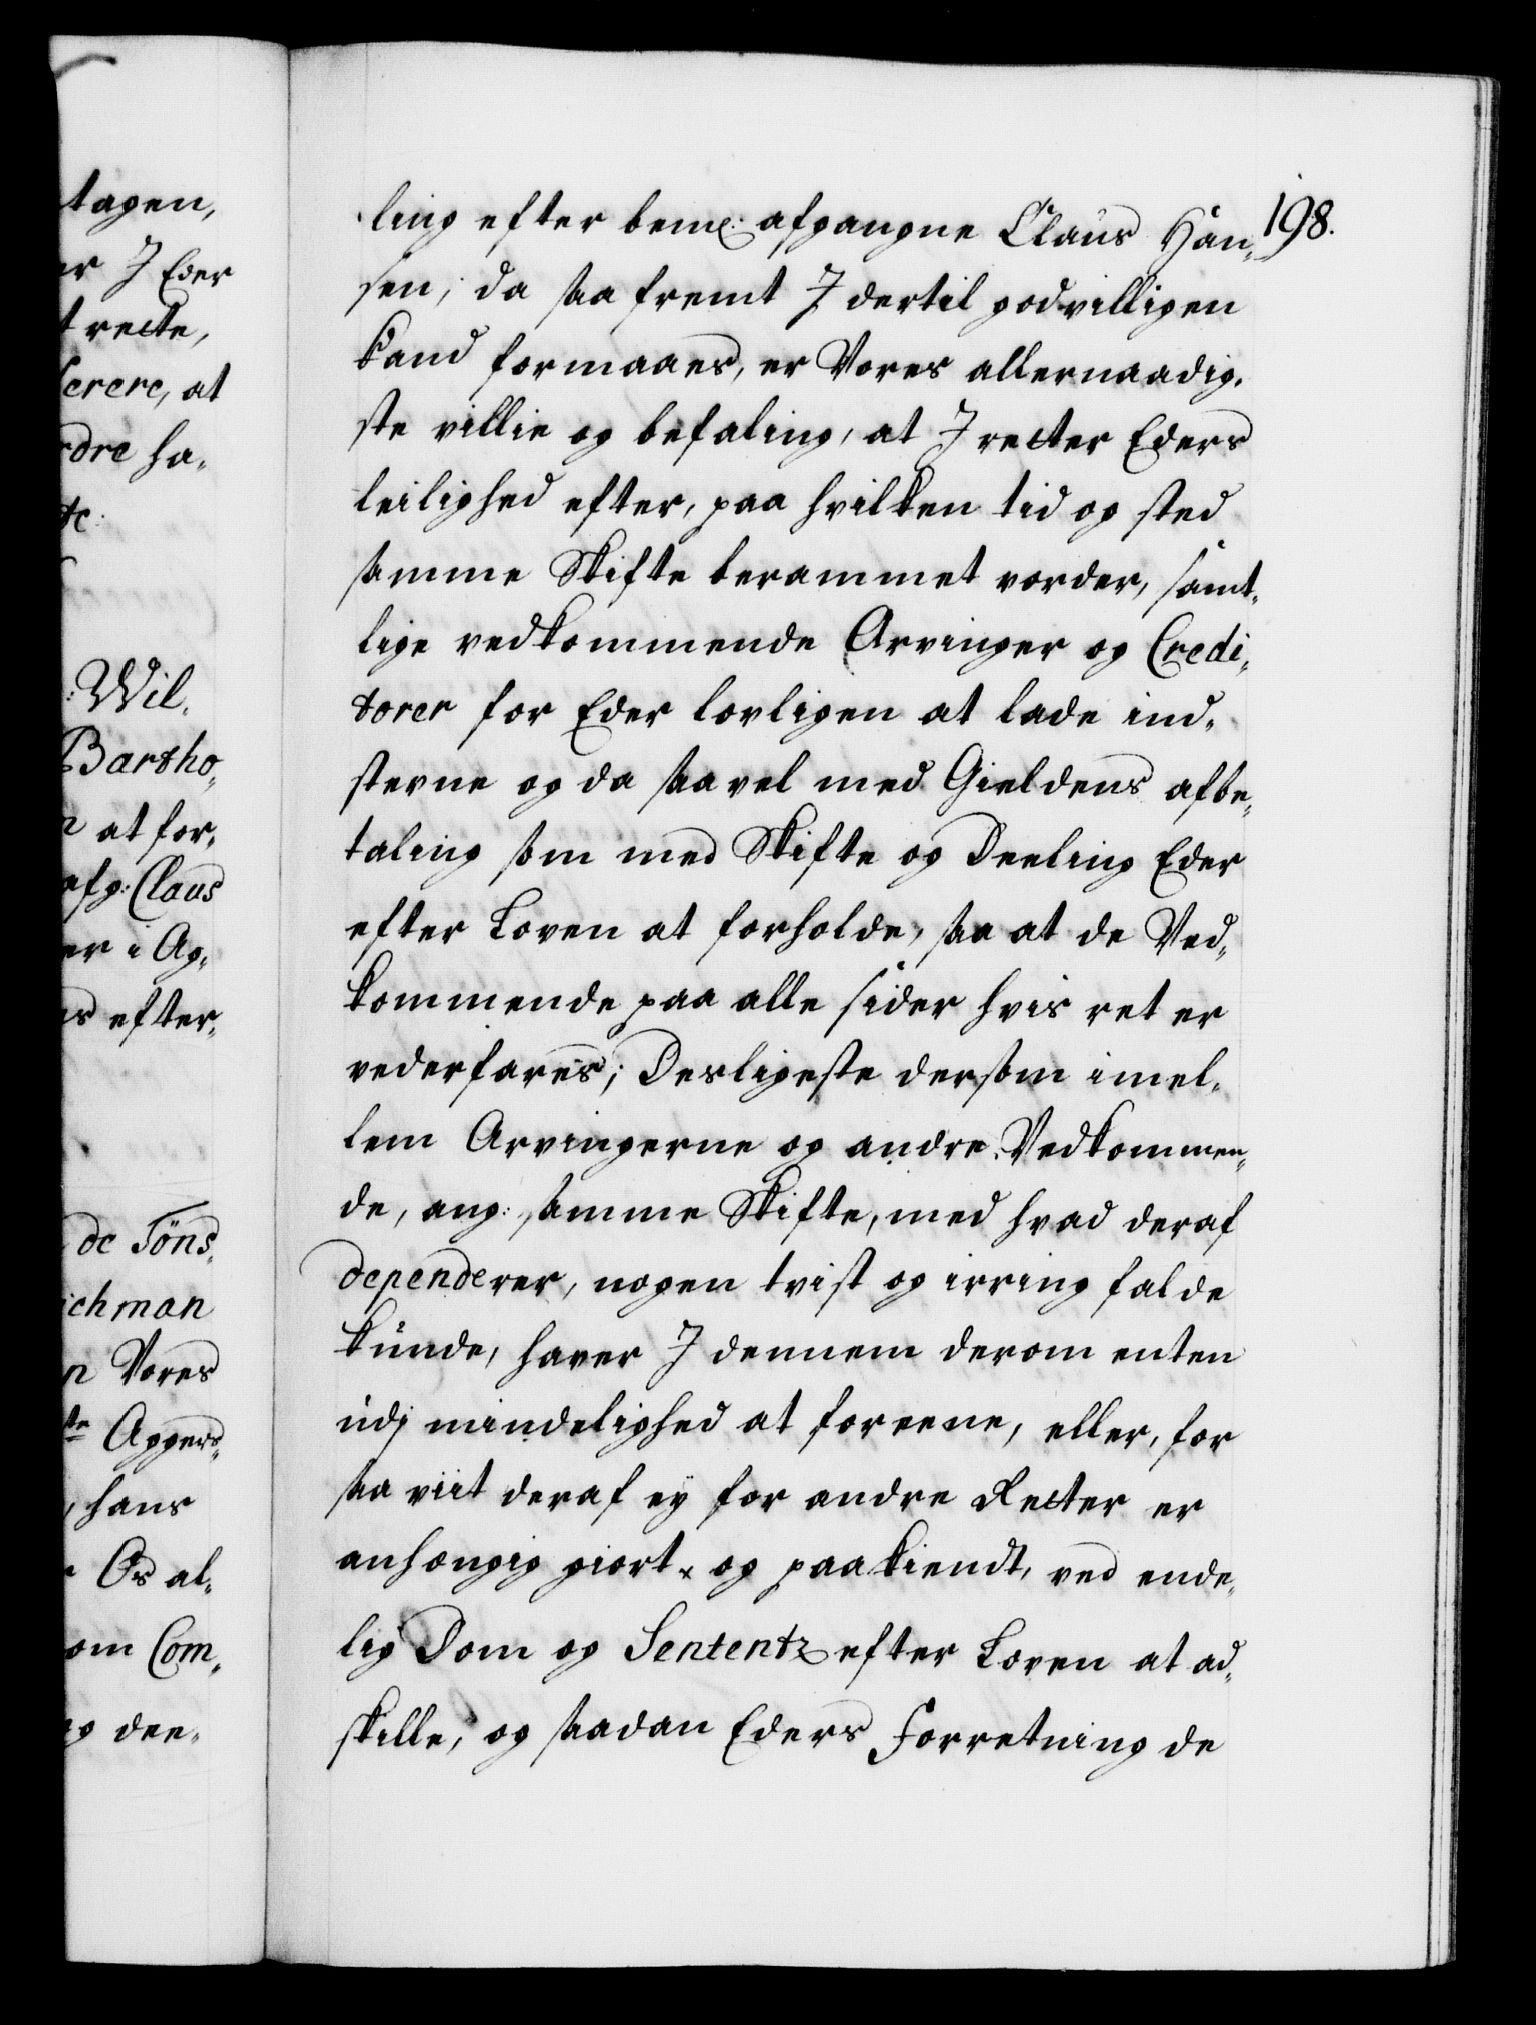 tagen,
er I Eder
t recte,
serere, at
rdre ha„
tc:
: Wil„
Bartho„
n at for„
afg: Claus
er i Ag„
es efter„
de Töns„
ichman
n Vores
te Aggers„
, hans
Os al„
om Com„
og dee„
198.
ling efter bemte: afgangne Claus Han„
sen, da saa fremt I dertil godvilligen
kand formaaes, er Vores allernaadig„
ste villie og befaling, at I retter Eders
leilighed efter, paa hvilken tid og sted
samme Skifte berammet vorder, samt„
lige vedkommende Arvinger og Credi„
torer for Eder lovligen at lade ind„
stevne og da saavel med Gieldens afbe„
taling som med Skifte og Deeling Eder
efter Loven at forholde, saa at de Ved„
kommende paa alle sider hvis ret er
vederfares; Desligeste dersom imel„
lem Arvingerne og andre Vedkommen„
de, ang: samme Skifte, med hvad deraf
dependerer, nogen tvist og irring falde
kunde, haver I dennem derom enten
udj mindelighed at foreene, eller, for
saa viit deraf ey for andre Retter er
anhængig giort og paakiendt, ved ende„
lig Dom og Sententz efter Loven at ad„
skille, og saadan Eders Forretning de